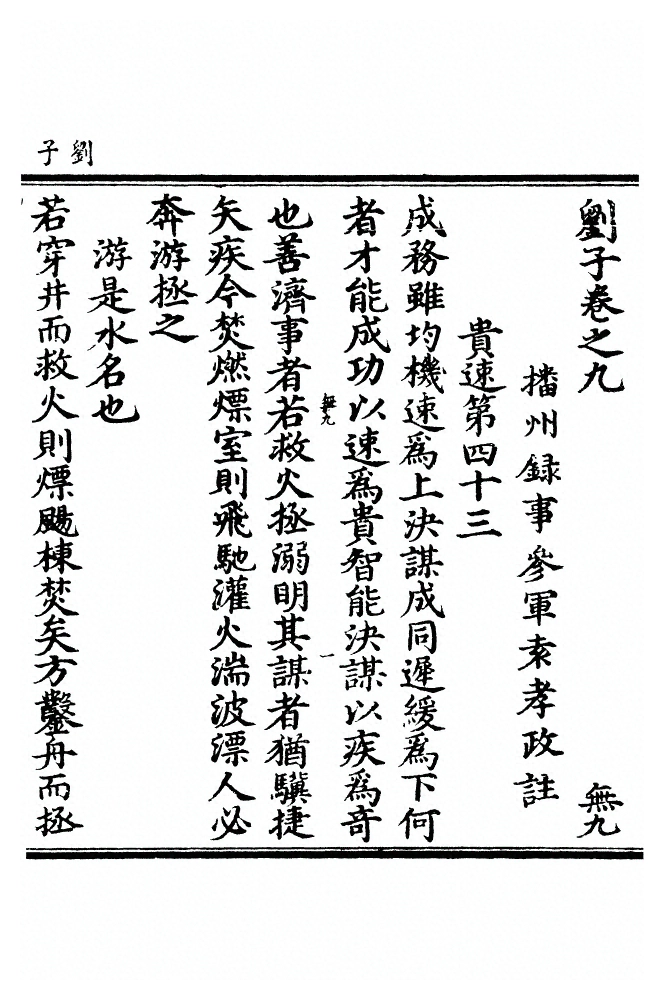 劉子
劉子卷之九 無九
播州録事參軍袁孝政註
貴速第四十三
成務雖均機速爲上決謀成同遲緩爲下何
者才能成功以速爲貴智能決謀以疾爲奇
無九 一
也善濟事者若救火拯溺明其謀者猶驥捷
矢疾今焚燃熛室則飛馳灌火湍波漂人必
奔游拯之
游是水名也
若穿井而救火則熛颺棟焚矣方鑿舟而拯